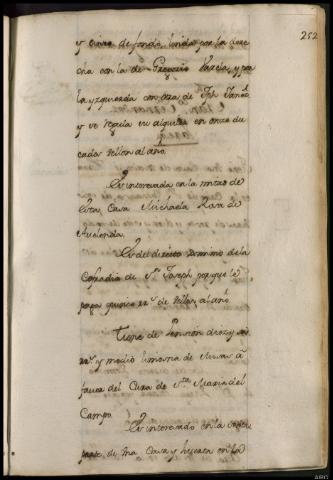 252
y cinco de fondo, linda por la dere
cha con la de Gregorio Garcia, y por
la yzquierda con otra de Jph
y se regula su alquiler en once du
cados vellon al año.
Es interesada en la mitad de
esta Casa Michaela Roxa de
Es del directo Dominio de la
Cofradia de Sn. Joseph porque le
paga quince rs. de vellon al año
Tiene de Pension doze y
rs. y medio limosna de Misas â
favor del Cura de Sta. Maria del
Campo
Es interesado en la
parte de Una Casa y